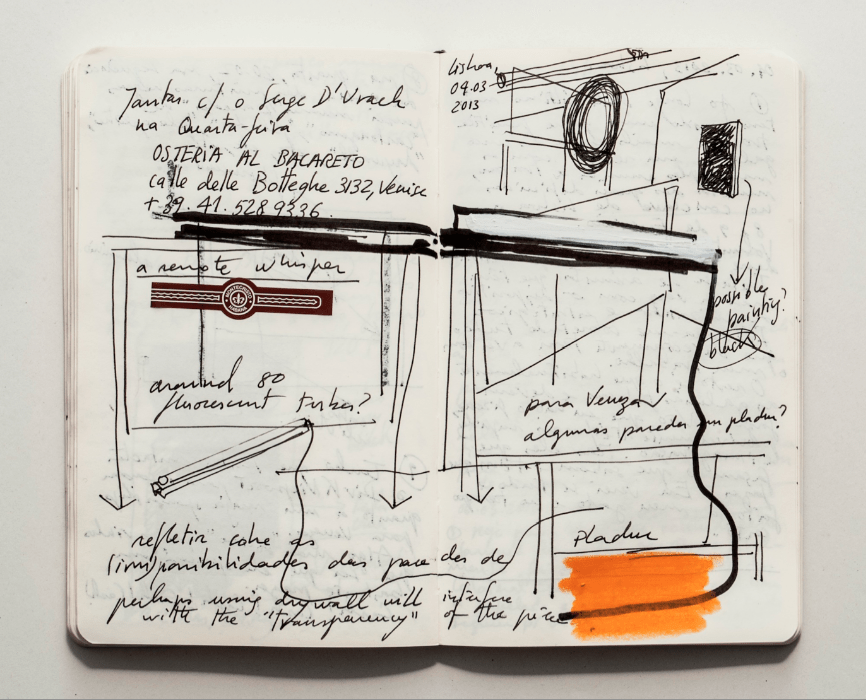 Jantar c/ o Serge D'Urach
na Quarta-feira
OSTERIA AL BACARETO
calle delle Botteghe 3132, Venise
+39.41.528 9336
a remote whisper
around 80
fluorescent tubes?
refletir sobre as
(im)possibilidades das paredes de
perhaps using drywall will interfere
with the "transparency" of the piece
Lisboa,
09.03
2013
possible
painting?
black
para Veneza
algumas paredes em pladur?
pladur